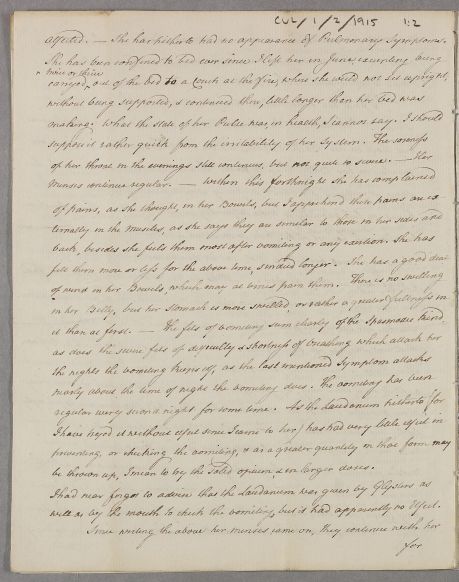 CUL/1/2/1915 1:2
affected. — She has hitherto had no appearance of Pulmonary Symptoms.
She has been confined to bed ever since I left her in June, excepting being
twice or thrice
carryed, out of the bed to a Couch at the fire, where she could not set upright,
without being supported, & continued there, little longer than her bed was
making. What the state of her Pulse was, in health, I cannot say. I should
suppose it rather quick from the irritability of her System. The soreness
of her throat in the evenings still continues, but not quite so severe. — Her
Menses continue regular. — Within this fortnight she has complained
of pains, as she thought, in her Bowels, but I apprehend these pains are ex
ternally in the Muscles, as she says they are similar to those in her sides and
back, besides she feels them most after vomiting or any exertion. She has
felt them more or less for the above time, & indeed longer. She has a good deal
of wind in her Bowels, which may at times pain them. There is no swelling
in her Belly, but her Stomach is more swelled, or rather a greater fullness in
it than at first. — The fits of vomiting seem clearly of the Spasmodic kind,
as does the severe fits of difficulty & shortness of breathing which attack her
the nights the vomiting keeps off, as the last mentioned Symptom attacks
nearly about the time of night the vomiting does. The vomiting has been
regular every second night for some time. As the Laudanum hitherto (for
I have tryed it without effect since I came to her) has had very little effect in
preventing, or checking the vomiting, & as a greater quantity in that form may
be thrown up, I mean to try the Solid opium, & in larger doses.
I had near forgot to advise that the Laudanum was given by Glysters as
well as by the mouth to check the vomiting, but it had apparently no Effect.
Since writing the above her menses came on, they continue with her
for